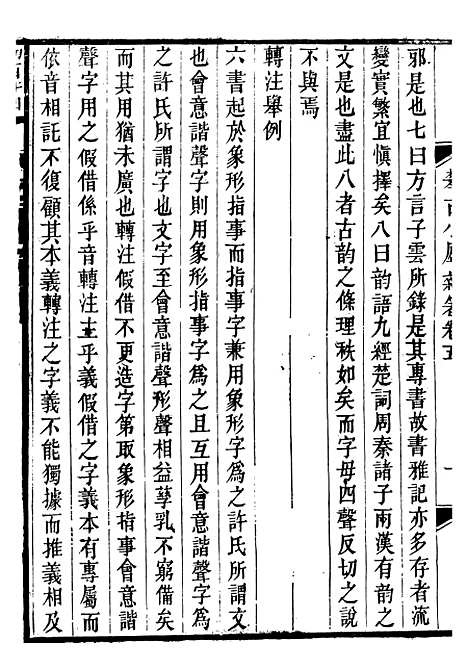 邪是也七曰方言子雲所錄是其專書故書雅記亦多存者流
變實繁宜愼擇矣八曰韵語九經楚詞周秦諸子兩漢有韵之
文是也盡此八者古韵之條理秩如矣而字母四聲反切之說
不與焉
轉注舉例
六書起於象形指事而指事字兼用象形字爲之許氏所謂文
也會意諧聲字則用象形指事字爲之且互用會意諧聲字爲
之許氏所謂字也文字至會意諧聲形聲相益孳乳不窮備矣
而其用猶未廣也轉注假借不更造字第取象形指事會意諧
聲字用之假借係乎音轉注主乎義假借之字義本有專屬而
依音相託不復顧其本義轉注之字義不能獨據而推義相及